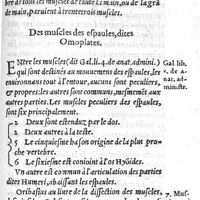 bre de tous les muscles de toute la main, ou de la grã
de main, paruient à trentetrois muscles.
Des muscles des espaules, dites
Omoplates.
ENtre les muscles (dit Gal. li. 4. de anat. admini.)
qui sont destinés au mouuement des espaules, les
enuironans tout à l'entour, aucuns sont peculiers,
& propres: les autres communs, mesmement aux
autres parties. Les muscles peculiers des espaules,
sont six principalement.
2 Deux sont estendus par le dos.
2 Deux autres à la teste.
5 Le cinquiesme ha son origine de la plus pro
che vertebre.
6 Le sixiesme est conioint à l'os Hyöides.
Vn autre est commun à l'articulation des parties
dites Humeri, abaissant les espaules.
Oribasius au liure de la dissection des muscles,
Gal. lib.
v. de A-
nat. ad-
ministr.
7. Mus-